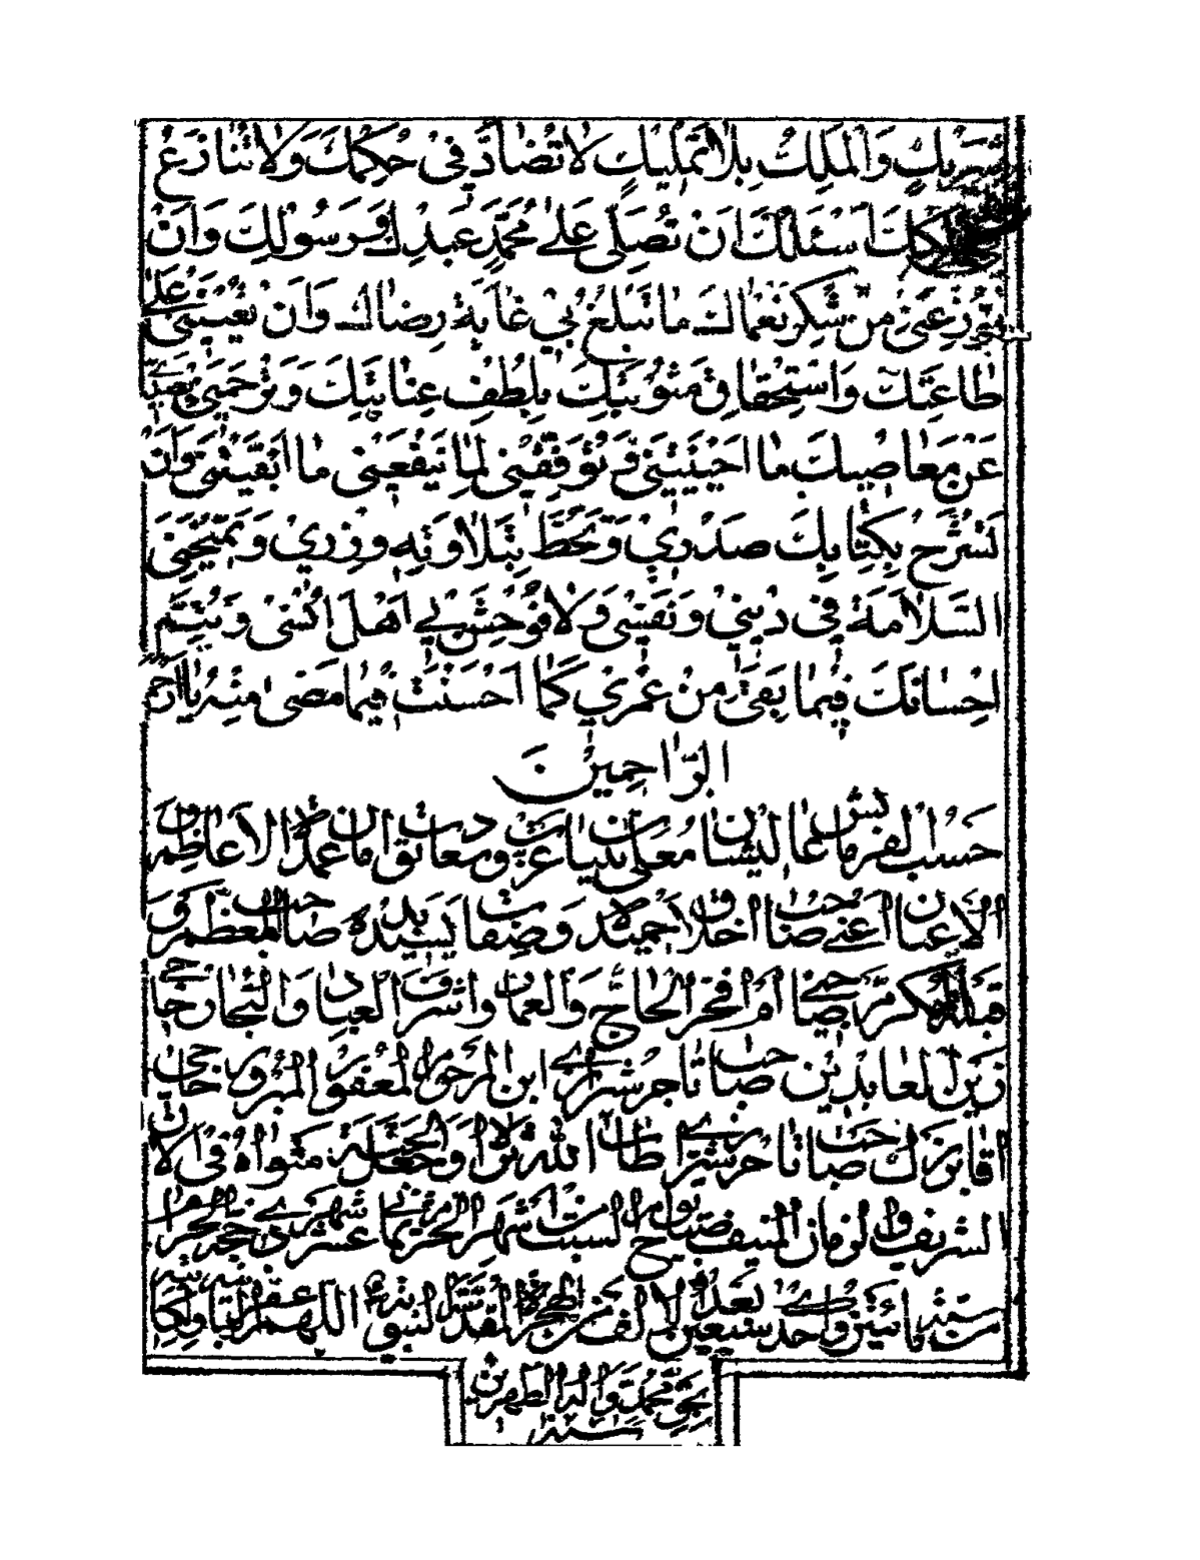 شَرِيكٍ وَالْمَلِكُ بِلَا تَمْلِيكٍ لَا تُضَادُّ فِي حُكْمِكَ وَلَا تُنَازَعُ
مُلْكِكَ أَسْئَلُكَ أَنْ تُصَلِّيَ عَلَى مُحَمَّدٍ عَبْدِكَ وَرَسُولِكَ وَأَنْ
تُوزِعَنِي مِنْ شُكْرِ نُعْمَاكَ مَا تَبْلُغُ بِي غَايَةَ رِضَاكَ وَأَنْ تُعِينَنِي عَلَى
طَاعَتِكَ وَاسْتِحْقَاقِ مَثُوبَتِكَ بِلُطْفِ عِنَايَتِكَ وَتَرْحَمَنِي بِصَدِّي
عَنْ مَعَاصِيكَ مَا أَحْيَيْتَنِي وَتُوَفِّقَنِي لِمَا يَنْفَعُنِي مَا أَبْقَيْتَنِي وَأَنْ
تَشْرَحَ بِكِتَابِكَ صَدْرِي وَتَحُطَّ بِتِلَاوَتِهِ وِزْرِي وَتَمْنَحَنِي
السَّلَامَةَ فِي دِينِي وَنَفْسِي وَلَا تُوحِشَ بِي أَهْلَ أُنْسِي وَتُتِمَّ
إِحْسَانَكَ فِيمَا بَقِيَ مِنْ عُمْرِي كَمَا أَحْسَنْتَ فِيمَا مَضَى مِنْهُ يَا أَرْحَمَ
الرَّاحِمِينَ
حسب الفرمايش عاليشان معلى عزت و سعادت عمدة الاعاظم و
الاعيان اعنى صاحب اخلاق حميده و صفات پسنديده صاحب المعظم و
قبله فخر الحاج والعمار و اشرف العباد والتجار حاجى
زين العابدين صاحب تاجر شيرازى ابن المرحوم المغفور المبرور حاجى
اقا بزرك صاحب تاجر شيرازى طاب الله ثراه و جعل الجنة مثواه فى الآن
الشريف والزمان المنيف صباح يوم السبت شهر
من مائتين و احدى سبعين بعد الالف من الهجرة المقدسة النبوى اللهم اغفر
بحق محمد و آله الطاهرين